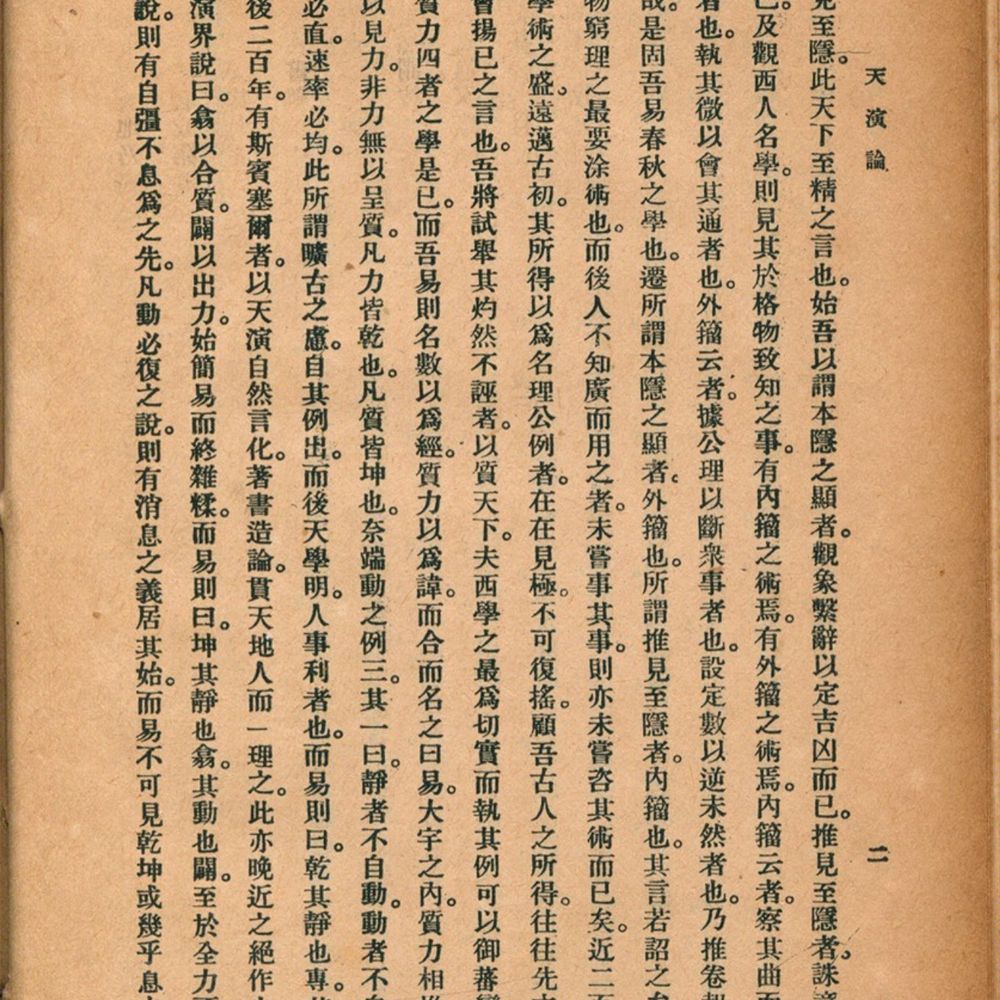 天演論
二
見至隱。此天下至精之言也。始吾以謂本隱之顯者。觀象繫辭以定吉凶而已。推見至隱者。誅意
已。及觀西人名學。則見其於格物致知之事。有內籀之術焉。有外籀之術焉。內籀云者。察其曲而
者也。執其微以會其通者也。外籀云者。據公理以斷衆事者也。設定數以逆未然者也。乃推卷起
哉。是固吾易春秋之學也。遷所謂本隱之顯者。外籀也。所謂推見至隱者。內籀也。其言若詔之矣
物窮理之最要涂術也。而後人不知廣而用之者。未嘗事其事。則亦未嘗咨其術而已矣。近二百
學術之盛。遠邁古初。其所得以爲名理公例者。在在見極。不可復搖。顧吾古人之所得。往往先之
會揚已之言也。吾將試舉其灼然不誣者。以質天下。夫西學之最爲切實而執其例可以御蕃變
質力四者之學是已。而吾易則名數以爲經。質力以爲諱。而合而名之曰易。大宇之內。質力相推
以見力。非力無以呈質。凡力皆乾也。凡質皆坤也。奈端動之例三。其一曰。靜者不自動。動者不自
必直。速率必均。此所謂曠古之慮。自其例出。而後天學明。人事利者也。而易則曰。乾其靜也專。其
後二百年。有斯賓塞爾者。以天演自然言化。著書造論。貫天地人而一理之。此亦晚近之絕作也
演界說曰。翕以合質。闢以出力。始簡易而終雜糅。而易則曰。坤其靜也翕。其動也闢。至於全力不
說。則有自彊不息爲之先。凡動必復之說。則有消息之義居其始。而易不可見乾坤或幾乎息